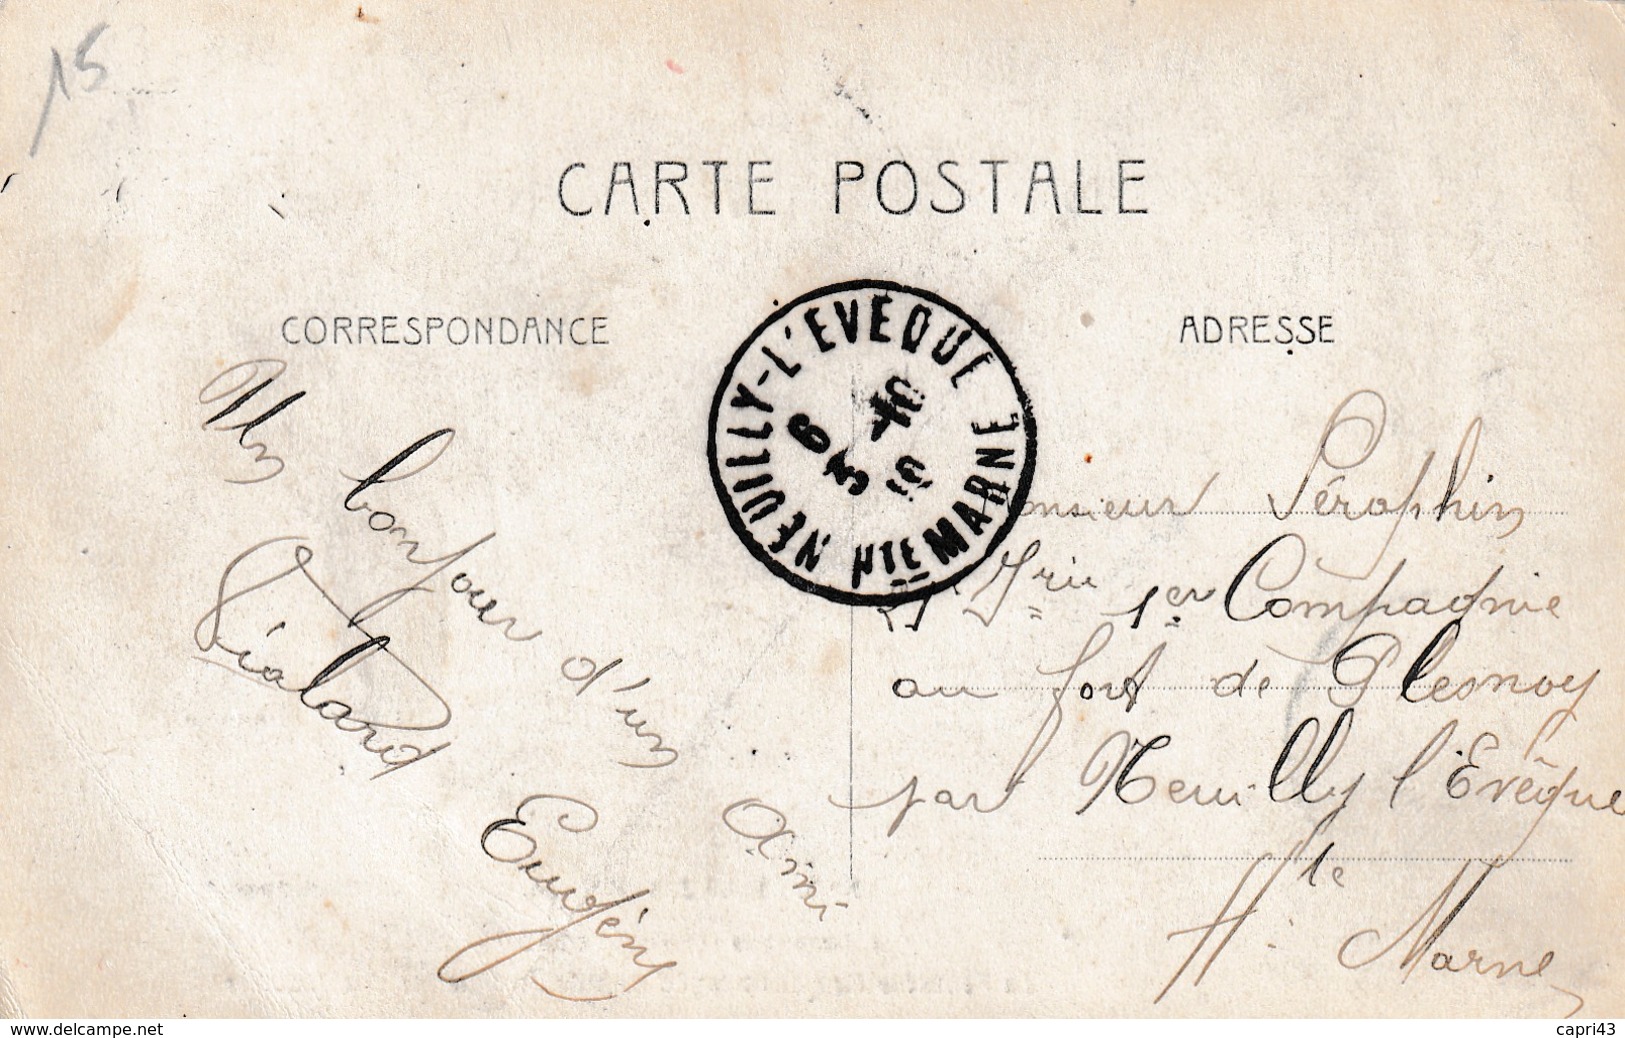 15
CARTE POSTALE
CORRESPONDANCE
ADRESSE
NEUILLY-L'EVEQUE
HTE MARNE
6 3
Un bonjour d'un ami
Vialard Eugény
Monsieur Séraphin
1er Compagnie
au fort de Plesnoy
par Neuilly l'Evêque
Hte Marne
www.delcampe.net
capri43